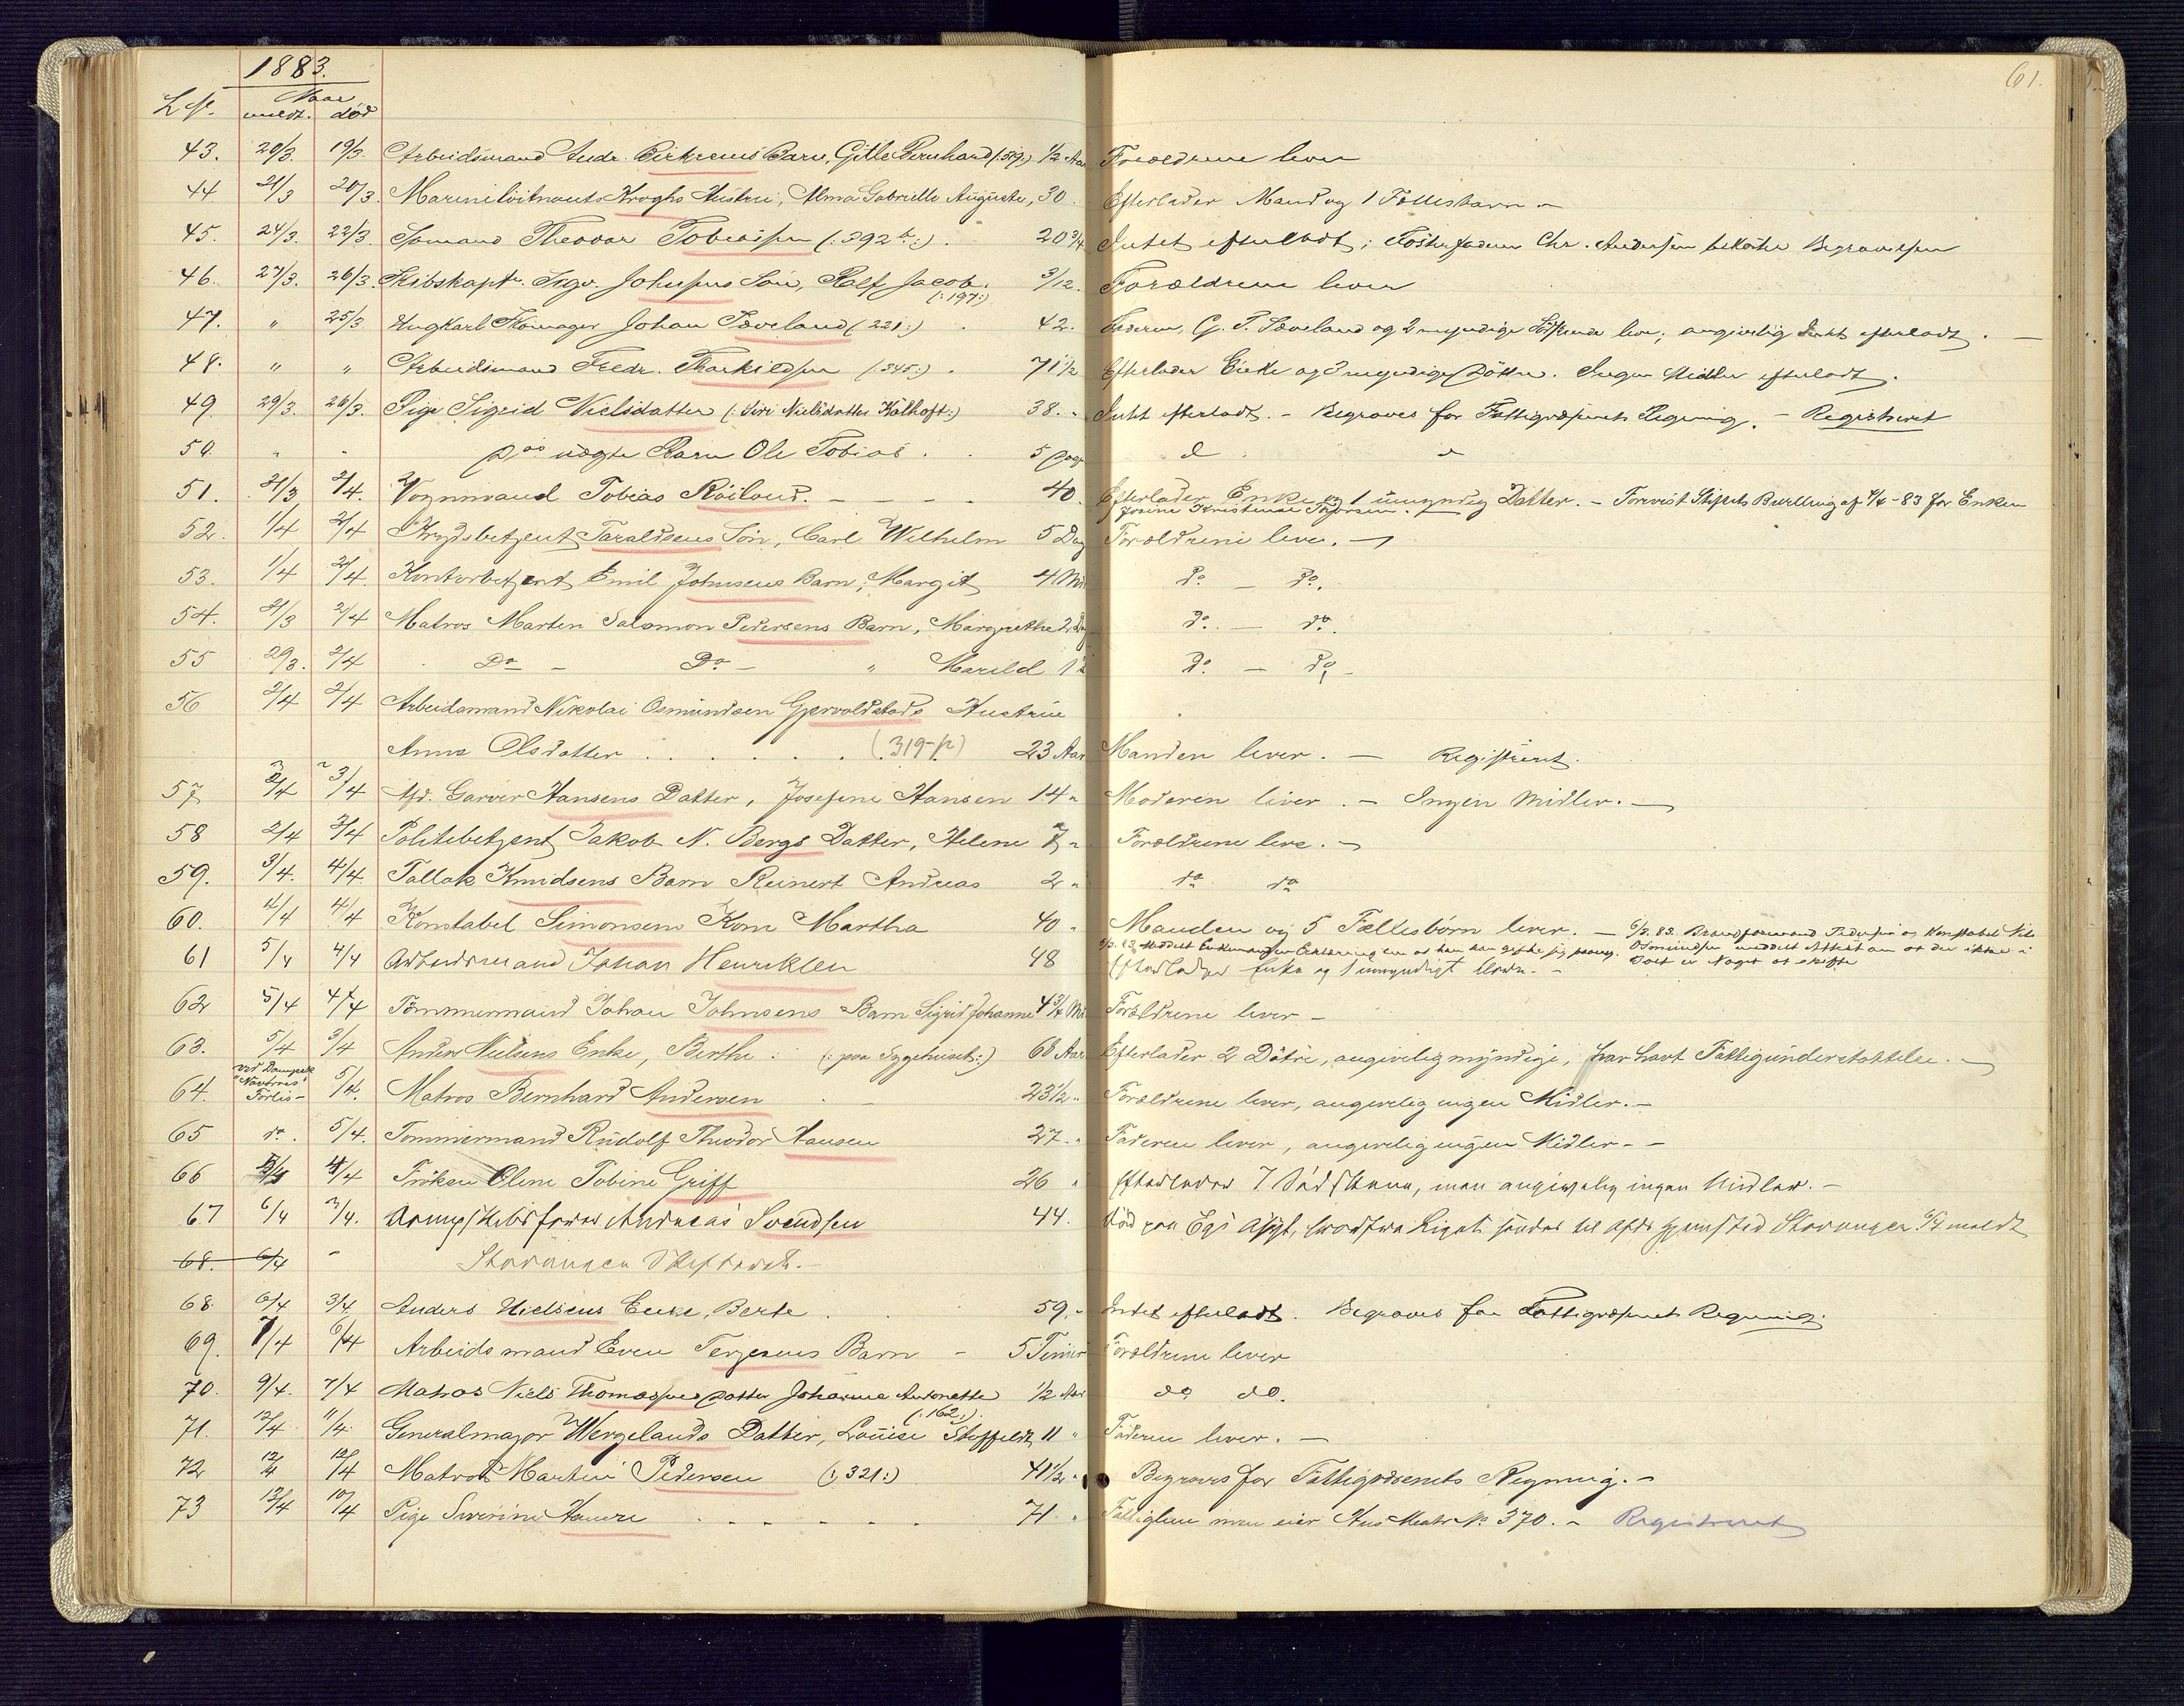 61.
1883.
L № Naar
meldt. død
43. 20/3. 19/3. Arbeidsmand Andr. Birkeuns Barn, Gitle Bernhard (:519:) 1/2 Aar Forældrene lever
44 21/3 20/3. Marinelöitnant Kroghs Hustru, Alma Gabrielle Auguste, 30. Efterlader Mand og 1 Fællesbarn –
45. 24/3. 22/3. Sömand Theodor Tobiassen (:392 b:). 20 3/4 Intet efterladt; Fosterfaderen Chr. Andersen bekoster Begravelsen
46. 27/3. 26/3. Skibskapt. Ingv. Johnsens Sön, Ralf Jacob. (:197:) 3/12. Forældrene lever
47. " 25/3. Ungkarl Skomager Johan Tveland (221:) . 42. Faderen, G. T. Tveland og 2 myndige Söskende lev; angivelig Intet efterladt. –
48. " " Arbeidsmand Fredr. Tharkildsen (:345:) . 71 1/2 Efterlader Enke og 3 myndige Döttre. Ingen Midler efterladt.
49. 29/3. 26/3. Pige Sigrid Nielsdatter (: Siri Nielsdatter Kalhoft:) 38. " Intet efterladt. – Begraves for Fattigvæsenets Regning. – Registreret
50. " " D,, uægte Barn Ole Tobias . . 5 Dage d " "
51. 31/3 2/4. Vognmand Tobias Röiland. – – – – 40. Efterlader Enke og 1 umyndig Datter. – Forevist Stiftets Bevilling af 4/4-83 for Enken
Josine Kristense Thorsen.
52. 1/4 2/4 Krydsbetjent Taraldsens Sön, Carl Wilhelm 5 Dag Forældrene lever. –
53. 1/4 2/4. Kontorbetjent Emil Johnsens Barn, Margit 4 Md Do – Do.
54. 31/3 2/4 Matros Marten Salomon Pedersens Barn, Margrethe 2 Dag Do. – Do.
55 29/3. 2/4 Do – Do – " Marild 1 " Do. – Do –
56 2/4 2/4 Arbeidsmand Nikolai Osmundsen Gjervoldstads Hustrue
Anna Olsdatter . . . . . . (319-p) 23 Aar Manden lever. – Registreret.
57 3/4 3/4 Afd. Garver Hansens Datter, Josefine Hansen 14 " Moderen lever. – Ingen Midler. –
58 2/4 3/4 Politibetjent Jakob N. Bergs Datter, Helene 7 " Forældrene leve. –
59. 3/4. 4/4. Tallak Knudsens Barn Reinert Andreas 2 " do do
60. 4/4 4/4 Konstabel Simonsens Kone Martha 40 " Manden og 5 Fællesbörn lever. – 6/9. 83. Brandformand Pedersen og Konstabel Nils
Osmundsen meddelt Attest om at der ikke i
Boet er Noget at skifte
Meddelt Enkemanden Erklæring om at han kan gifte sig paany.
61 5/4 4/4 Arbeidsmand Johan Henriksen 48 Efterlader Enke og 1 umyndigt Barn. –
62 5/4 4/4 Tömmermand Johan Johnsens Barn Sigrid Johanne 4 3/4 Md Forældrene lever –
63. 5/4 3/4 Anders Nielsens Enke, Berthe : (: paa Sygehuset:) 68 Aar Efterlader 2 Dötre, angivelig myndige, har havt Fattigunderstøttelse. –
64. ved Dampsk "Navarras" Forlis – 5/4. Matros Bernhard Andersen . – 23 1/2 " Forældrene lever, angivelig ingen Midler. –
65 do. 5/4. Tommermand Rudolf Theodor Hansen 27. " Faderen lever, angivelig ingen Midler. –
66 5/4 Fröken Oline Tobine Griff 26 " Efterlader 7 Sødskend, men angivelig ingen Midler. –
67 6/4 3/4. Dampskibsförer Andreas Svendsen 44. Död paa Egs Asyl, hvorfra Liget sendes til Afds Hjemsted Stavanger 6/4 meldt
68. 6/4 – Stavanger Skifteret. –
68. 6/4 3/4. Anders Nielsens Enke, Berte . . 59. " Intet efterladt. Begraves for Fattigvæsenets Regning.
69. 7/4 6/4 Arbeidsmand Even Terjesens Barn – 5 Timer Forældrene lever
70. 9/4. 7/4 Matros Niels Thomassens Datter Johanne Antonette 1/2 Aar do do.
71. 12/4 11/4. Generalmajor Wergelands Datter, Louise Steffeldt (:162:) 11 " Faderen lever. –
72 12/4 12/4 Matros Martin Pedersen (:321:) 41 1/2 " Begraves for Fattigvæsenets Regning. –
73 12/4 10/4 Pige Severine Hauvre . – . – . – . 71 " Fattiglem men eier Hus Matr No 370. – Registreret